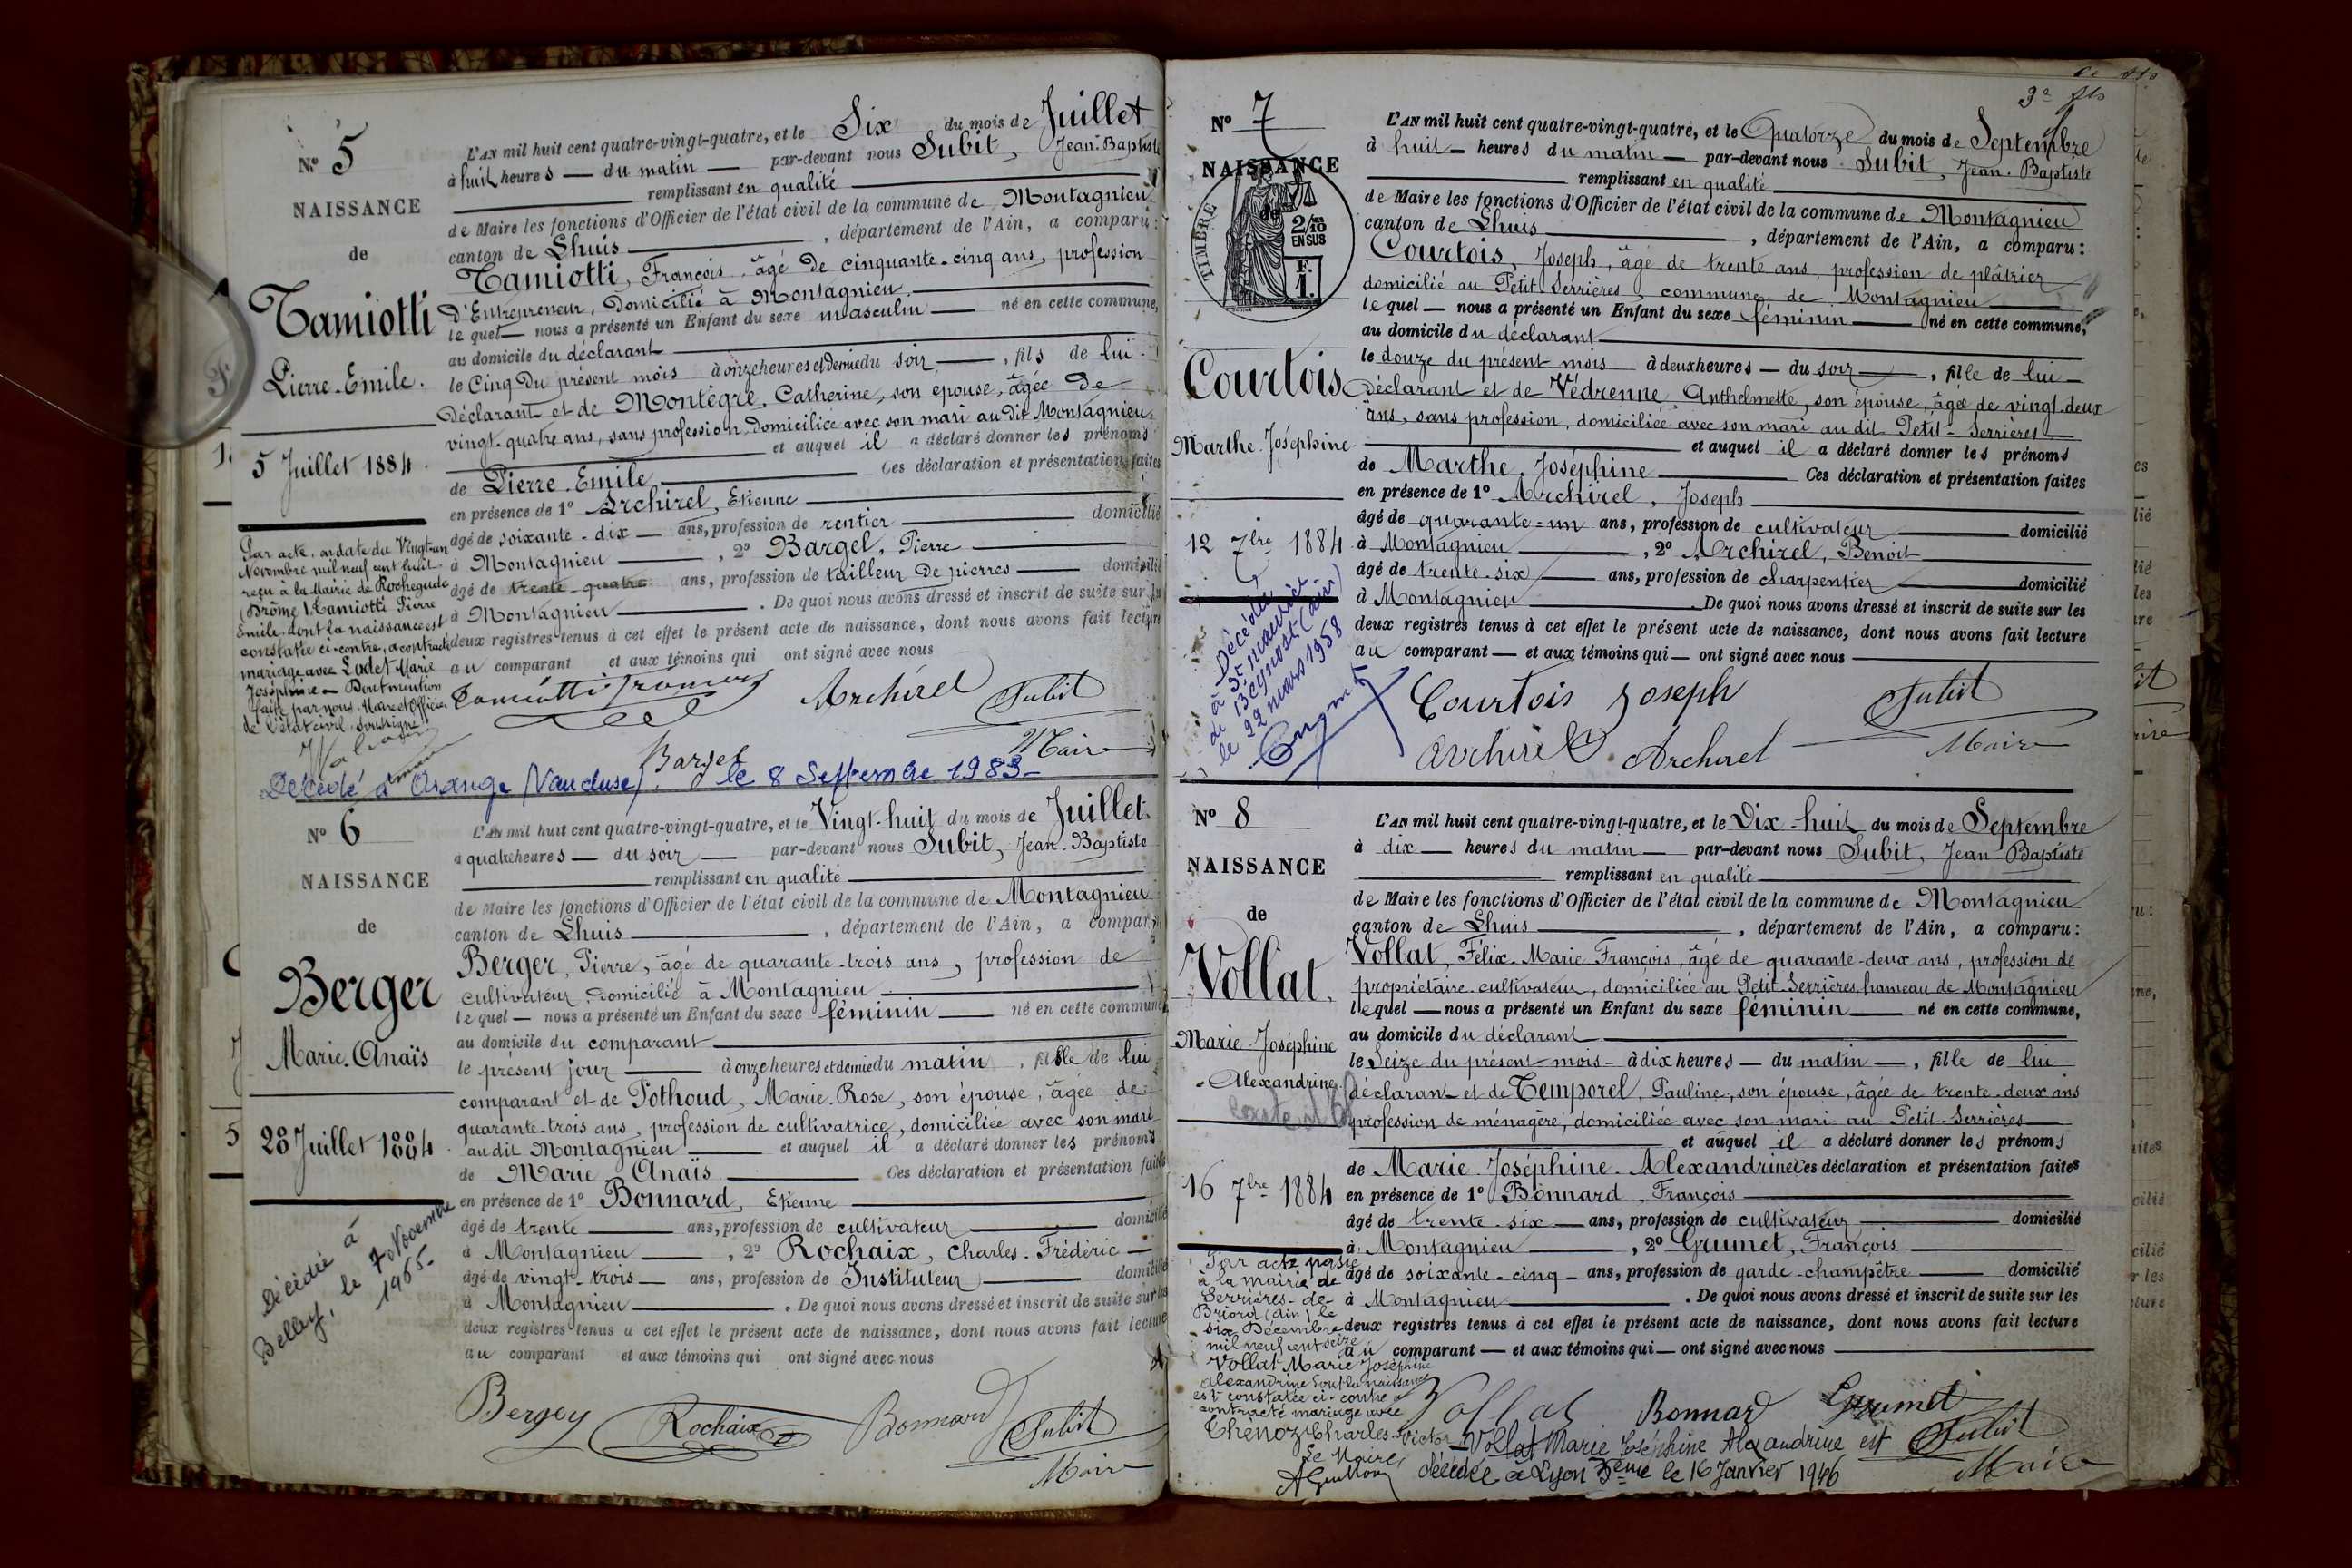 N° 5
NAISSANCE
de
Tamiotti
Pierre-Emile.
5 Juillet 1884.
Par acte, en date du Vingt-un
Novembre mil neuf cent huit
reçu à la Mairie de Rochegude
(Drôme) Tamiotti Pierre
Emile, dont la naissance est
constatée ci-contre, a contracté
mariage avec Ladet Marie
Joséphine — Dont mention
faite par nous, Maire et Officier
de l'état civil, soussigné
L'AN mil huit cent quatre-vingt-quatre, et le Six du mois de Juillet
à huit heures — du matin — par-devant nous Subit, Jean-Baptiste
remplissant en qualité
de Maire les fonctions d'Officier de l'état civil de la commune de Montagnieu
canton de Lhuis , département de l'Ain, a comparu :
Tamiotti, François, âgé de cinquante-cinq ans, profession
d'Entrepreneur, domicilié à Montagnieu
lequel — nous a présenté un Enfant du sexe masculin — né en cette commune,
au domicile du déclarant
le Cinq du présent mois à onze heures et demie du soir —, fils de lui
déclarant et de Montégre, Catherine, son épouse, âgée de
vingt-quatre ans, sans profession, domiciliée avec son mari au dit Montagnieu
et auquel il a déclaré donner les prénoms
de Pierre-Emile Ces déclaration et présentation faites
en présence de 1° Archirel, Etienne
âgé de soixante-dix — ans, profession de rentier domicilié
à Montagnieu , 2° Bargel, Pierre
âgé de trente-quatre ans, profession de tailleur de pierres — domicilié
à Montagnieu . De quoi nous avons dressé et inscrit de suite sur les
deux registres tenus à cet effet le présent acte de naissance, dont nous avons fait lecture
au comparant et aux témoins qui ont signé avec nous
Tamiotti François Archirel Subit
Bargel Maire
Décédé à Orange (Vaucluse) le 8 Septembre 1983
N° 6
NAISSANCE
de
Berger
Marie-Anaïs
28 Juillet 1884.
Décédée à
Belley, le 7 Novembre
1965
L'AN mil huit cent quatre-vingt-quatre, et le Vingt-huit du mois de Juillet
à quatre heures — du soir — par-devant nous Subit, Jean-Baptiste
remplissant en qualité
de Maire les fonctions d'Officier de l'état civil de la commune de Montagnieu
canton de Lhuis , département de l'Ain, a comparu
Berger, Pierre, âgé de quarante-trois ans, profession de
cultivateur, domicilié à Montagnieu
lequel — nous a présenté un Enfant du sexe féminin — né en cette commune
au domicile du comparant
le présent jour à onze heures et demie du matin, fille de lui
comparant et de Pothoud, Marie-Rose, son épouse, âgée de
quarante-trois ans, profession de cultivatrice, domiciliée avec son mari
au dit Montagnieu et auquel il a déclaré donner les prénoms
de Marie-Anaïs Ces déclaration et présentation faites
en présence de 1° Bonnard, Etienne
âgé de trente ans, profession de cultivateur domicilié
à Montagnieu , 2° Rochaix, Charles-Frédéric —
âgé de vingt-trois — ans, profession de Instituteur domicilié
à Montagnieu . De quoi nous avons dressé et inscrit de suite sur les
deux registres tenus à cet effet le présent acte de naissance, dont nous avons fait lecture
au comparant et aux témoins qui ont signé avec nous
Berger Rochaix Bonnard Subit
Maire
N° 7
NAISSANCE
de
TIMBRE
2/10
EN SUS
F.
1.
Courtois
Marthe-Joséphine
12 7bre 1884
Décédée
à St Maurice
de Beynost (Ain)
le 22 mars 1958
L'AN mil huit cent quatre-vingt-quatre, et le Quatorze du mois de Septembre
à huit — heures du matin — par-devant nous Subit, Jean-Baptiste
remplissant en qualité
de Maire les fonctions d'Officier de l'état civil de la commune de Montagnieu
canton de Lhuis , département de l'Ain, a comparu :
Courtois, Joseph, âgé de trente ans, profession de plâtrier
domicilié au Petit-Serrières, commune de Montagnieu
lequel — nous a présenté un Enfant du sexe féminin — né en cette commune,
au domicile du déclarant
le douze du présent mois à deux heures — du soir —, fille de lui —
déclarant et de Védrenne, Anthelmette, son épouse, âgée de vingt-deux
ans, sans profession, domiciliée avec son mari au dit Petit-Serrières
et auquel il a déclaré donner les prénoms
de Marthe-Joséphine Ces déclaration et présentation faites
en présence de 1° Archirel, Joseph
âgé de quarante-un ans, profession de cultivateur domicilié
à Montagnieu , 2° Archirel, Benoit
âgé de trente-six ans, profession de charpentier domicilié
à Montagnieu . De quoi nous avons dressé et inscrit de suite sur les
deux registres tenus à cet effet le présent acte de naissance, dont nous avons fait lecture
au comparant — et aux témoins qui — ont signé avec nous
Courtois Joseph Subit
Archirel Archirel Maire
N° 8
NAISSANCE
de
Vollat,
Marie-Joséphine
-Alexandrine
16 7bre 1884
Par acte passé
à la mairie de
Serrières-de-
Briord (Ain) le
six Décembre
mil neuf cent seize
Vollat Marie Joséphine
Alexandrine dont la naissance
est constatée ci-contre a
contracté mariage avec
Chenoz Charles-Victor
Le Maire,
L'AN mil huit cent quatre-vingt-quatre, et le Dix-huit du mois de Septembre
à dix — heures du matin — par-devant nous Subit, Jean-Baptiste
remplissant en qualité
de Maire les fonctions d'Officier de l'état civil de la commune de Montagnieu
canton de Lhuis , département de l'Ain, a comparu :
Vollat, Félix-Marie-François, âgé de quarante-deux ans, profession de
propriétaire-cultivateur, domiciliée au Petit-Serrières, hameau de Montagnieu
lequel — nous a présenté un Enfant du sexe féminin — né en cette commune,
au domicile du déclarant
le Seize du présent mois - à dix heures — du matin —, fille de lui
déclarant et de Temporel, Pauline, son épouse, âgée de trente-deux ans
profession de ménagère, domiciliée avec son mari au Petit-Serrières
et auquel il a déclaré donner les prénoms
de Marie-Joséphine-Alexandrine Ces déclaration et présentation faites
en présence de 1° Bonnard, François
âgé de trente-six — ans, profession de cultivateur domicilié
à Montagnieu , 2° Grumet, François
âgé de soixante-cinq — ans, profession de garde-champêtre domicilié
à Montagnieu . De quoi nous avons dressé et inscrit de suite sur les
deux registres tenus à cet effet le présent acte de naissance, dont nous avons fait lecture
au comparant — et aux témoins qui — ont signé avec nous
Vollat Bonnard Grumet
Vollat Marie Joséphine Alexandrine est Subit
décédée à Lyon 3ème le 16 Janvier 1946 Maire